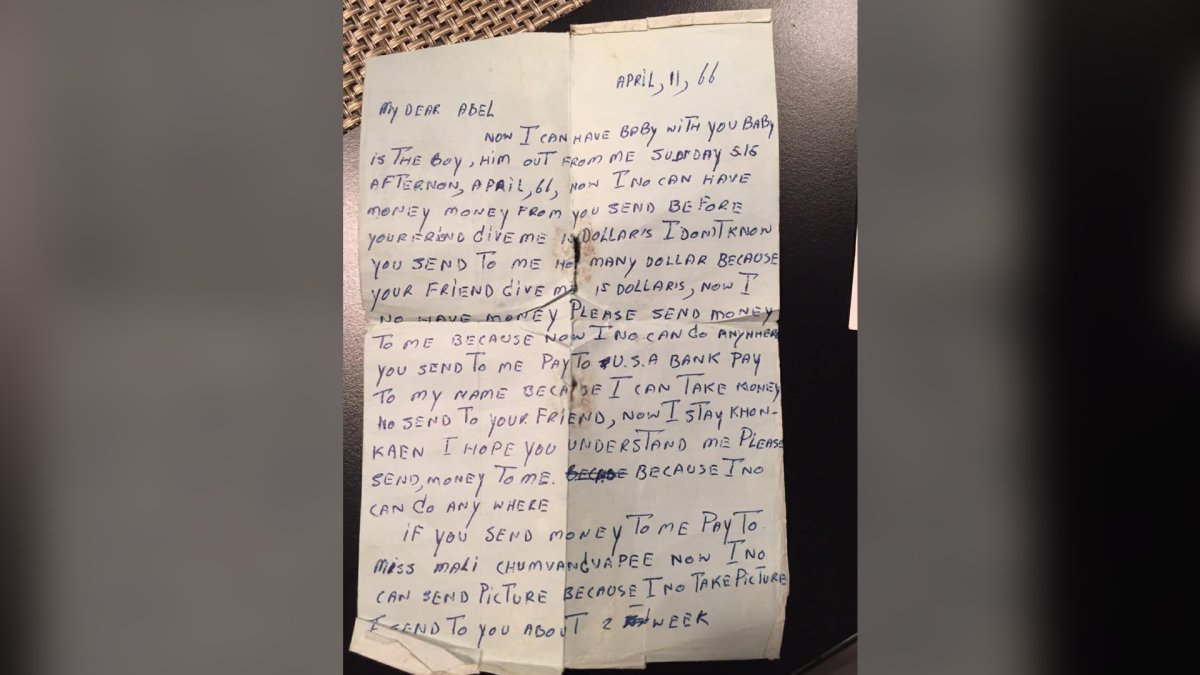 APRIL, 11, 66
MY DEAR ABEL
NOW I CAN HAVE BABY WITH YOU BABY
IS THE BOY, HIM OUT FROM ME SUNDAY 5.15
AFTERNON, APAIL, 66, NOW I NO CAN HAVE
MONEY MONEY FROM YOU SEND BEFORE
YOUR FRIEND GIVE ME 15 DOLLARIS I DON'T KNOW
YOU SEND TO ME HO MANY DOLLAR BECAUSE
YOUR FRIEND GIVE ME 15 DOLLARIS, NOW I
NO HAVE MONEY PLEASE SEND MONEY
TO ME BECAUSE NOW I NO CAN GO ANYWHERE
YOU SEND TO ME PAY TO U.S.A BANK PAY
TO MY NAME BECAUSE I CAN TAKE MONEY
NO SEND TO YOUR FRIEND, NOW I STAY KHON-
KAEN I HOPE YOU UNDERSTAND ME PLEASE
SEND, MONEY TO ME. BECAUSE I NO
CAN GO ANY WHERE
IF YOU SEND MONEY TO ME PAY TO
MISS MALI CHUMVANGVAPEE NOW I NO
CAN SEND PICTURE BECAUSE I NO TAKE PICTURE
I SEND TO YOU ABOUT 2 WEEK